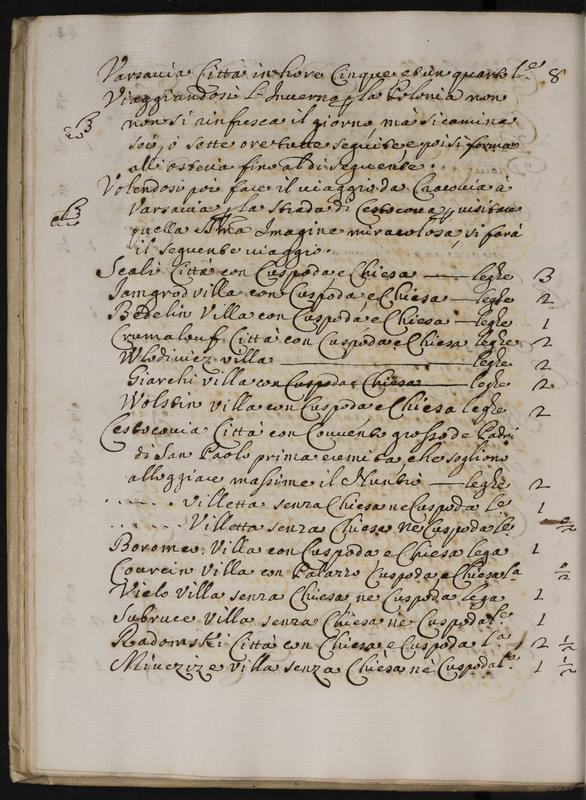 Varsavia Città in hore Cinque e un quarto l.e 8
Viaggiandosi l'Inverno p la Polonia non
non si rinfresca il giorno, ma si camina
sei, ò sette ore tutte seguite e poi si forma
all'osteria fino al dì seguente.
Volendosi poi fare il viaggio da Cracovia à
Varsavia p la strada di Cestocovia p visitare
quella SS.ma Imagine miracolosa, si farà
il seguente viaggio.
Scali Città con Cuspoda e Chiesa — leghe 3
Iamgrod villa con Cuspoda e Chiesa — leghe 2
Bedelin Villa con Cuspoda e Chiesa — leghe 1
Crumalouf Città con Cuspoda e Chiesa leghe 2
Wlodiviez villa — leghe 2
Giarchi villa con Cuspoda e Chiesa — leghe 2
Wolstin villa con Cuspoda, e Chiesa leghe 2
Cestocovia Città con Convento grosso de Padri
di San Paolo primo eremita che sogliono
alloggiare massime il Nuntio — leghe 2
...... villetta senza Chiesa ne Cuspoda le 1
...... Villetta senza Chiesa ne Cuspoda le 1/2
Boromeo. Villa con Cuspoda e Chiesa lega 1
Coucin Villa con Palazzo Cuspoda e Chiesa l.a 1/2
Vielo villa senza Chiesa ne Cuspoda lega 1
Subruce Villa senza Chiesa ne Cuspoda l.e 1
Radomski Città con Chiesa e Cuspoda l.a 2 1/2
villa senza Chiesa nè Cuspoda l.a 1 1/2